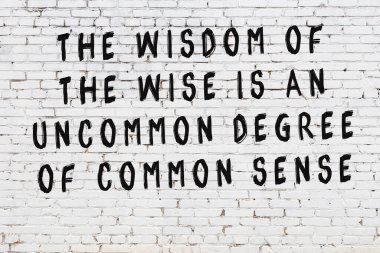 THE WISDOM OF
THE WISE IS AN
UNCOMMON DEGREE
OF COMMON SENSE